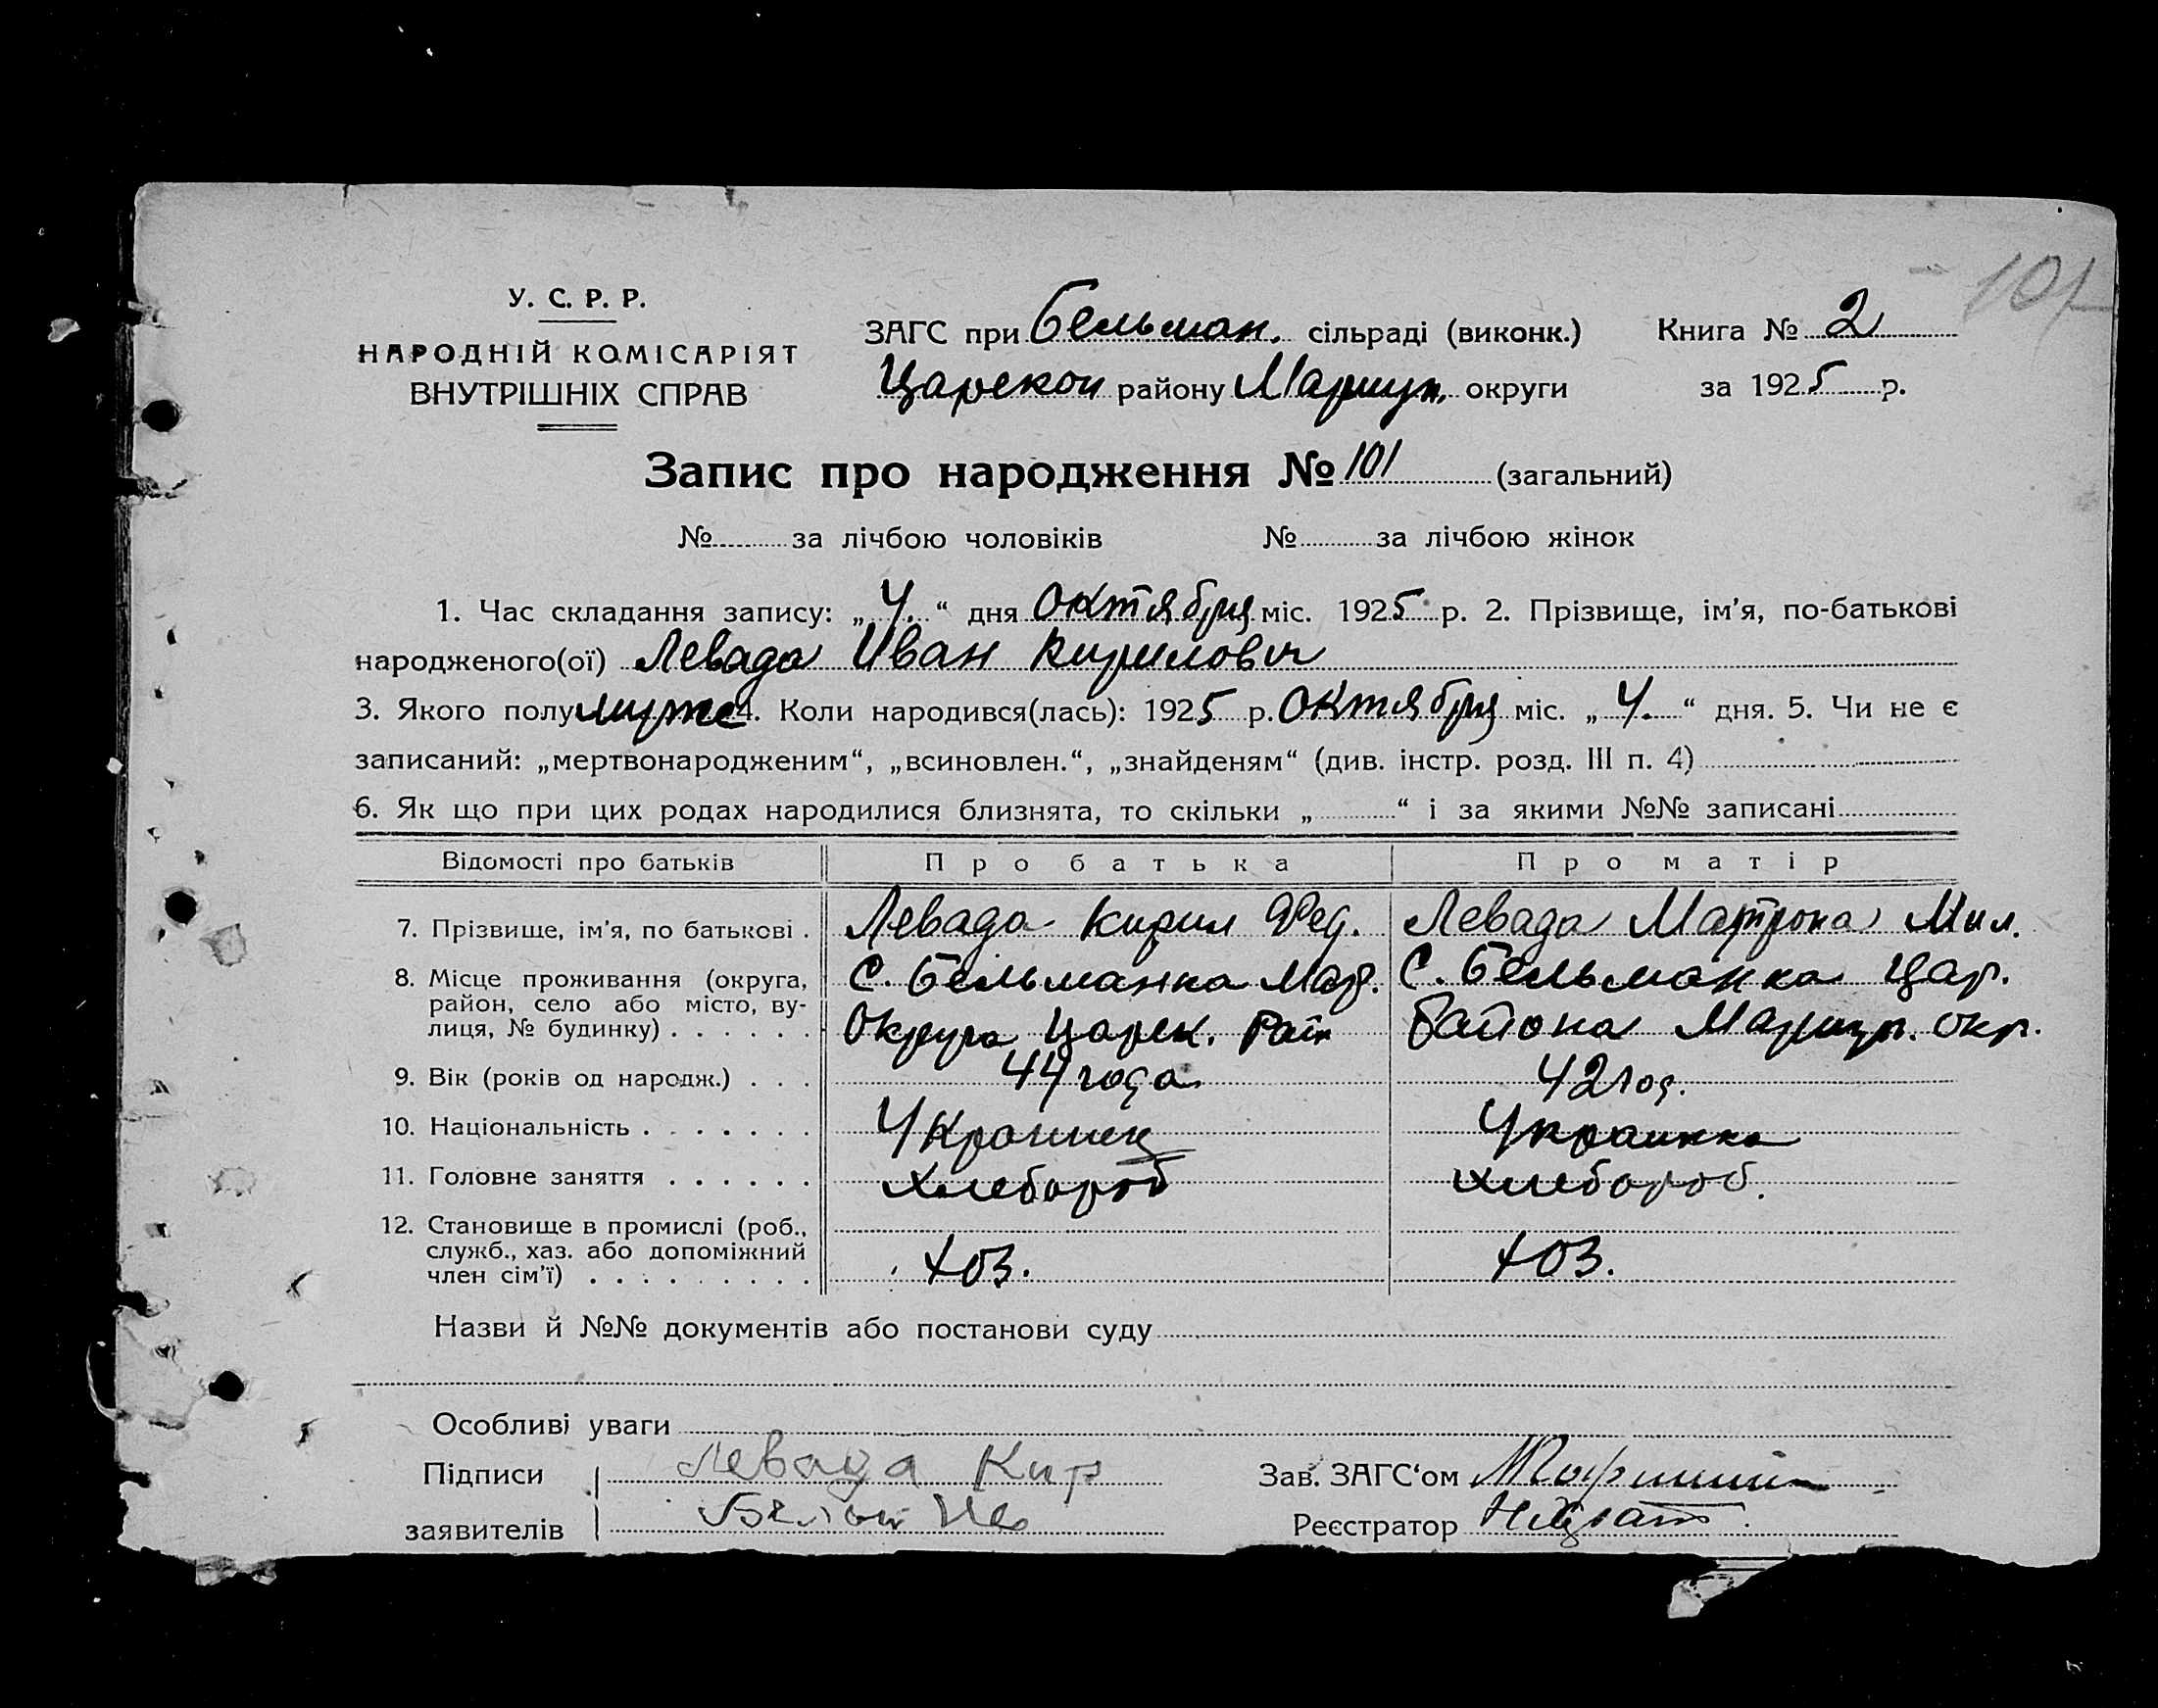 101
У. С. Р. Р.
НАРОДНІЙ КОМІСАРІЯТ
ВНУТРІШНІХ СПРАВ
ЗАГС при Бельман. сільраді (виконк.) Книга № 2
Царекон району Мариуп. округи за 1925 р.
Запис про народження № 101 (загальний)
№ за лічбою чоловіків № за лічбою жінок
1. Час складання запису: „4.“ дня октября міс. 1925 р. 2. Прізвище, ім'я, по-батькові
народженого(ої) Левада Иван Кирилович
3. Якого полу мужс 4. Коли народився(лась): 1925 р. октября міс. „4.“ дня. 5. Чи не є
записаний: „мертвонародженим“, „всиновлен.“, „знайденям“ (див. інстр. розд. III п. 4)
6. Як що при цих родах народилися близнята, то скільки „ “ і за якими №№ записані
Відомості про батьків Про батька Про матір
7. Прізвище, ім'я, по батькові . Левада Кирил Фед. Левада Матрона Мил.
8. Місце проживання (округа, район, село або місто, вулиця, № будинку) . . . . . . С. Бельманка Мар. С. Бельманка Цар.
Округа Царек. Рай Района Мариуп. окр.
9. Вік (років од народж.) . . . 44 года 42 год.
10. Національність . . . . . . . Украинец Украинка
11. Головне заняття . . . . . . Хлебороб хлебороб.
12. Становище в промислі (роб., служб., хаз. або допоміжний член сім'ї) . . . . . . . . . хоз. хоз.
Назви й №№ документів або постанови суду
Особливі уваги
Підписи Левада Кир Зав. ЗАГС'ом
заявителів Реєстратор